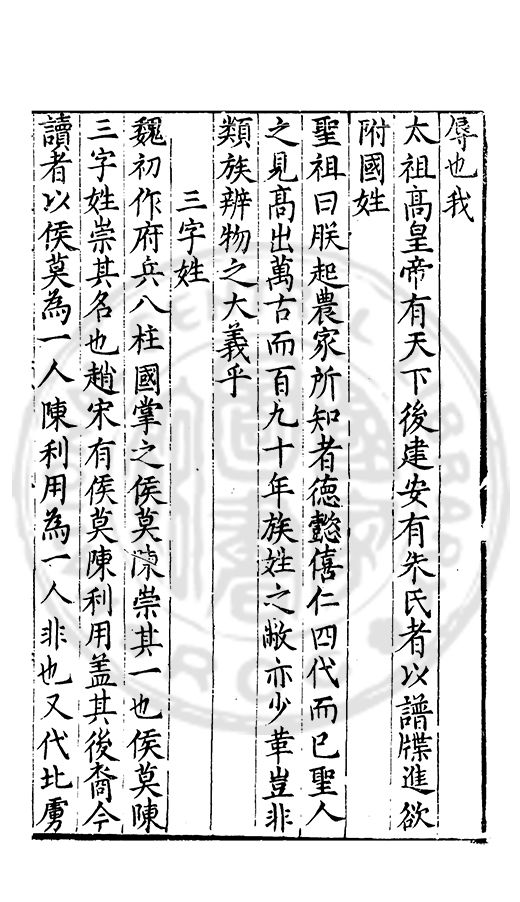 辱也我
太祖高皇帝有天下後建安有朱氏者以譜牒進欲
附國姓
聖祖曰朕起農家所知者德懿僖仁四代而已聖人
之見高出萬古而百九十年族姓之敝亦少革豈非
類族辨物之大義乎
三字姓
魏初作府兵八柱國掌之侯莫陳崇其一也侯莫陳
三字姓崇其名也趙宋有侯莫陳利用盖其後裔今
讀者以侯莫為一人陳利用為一人非也又代北虜